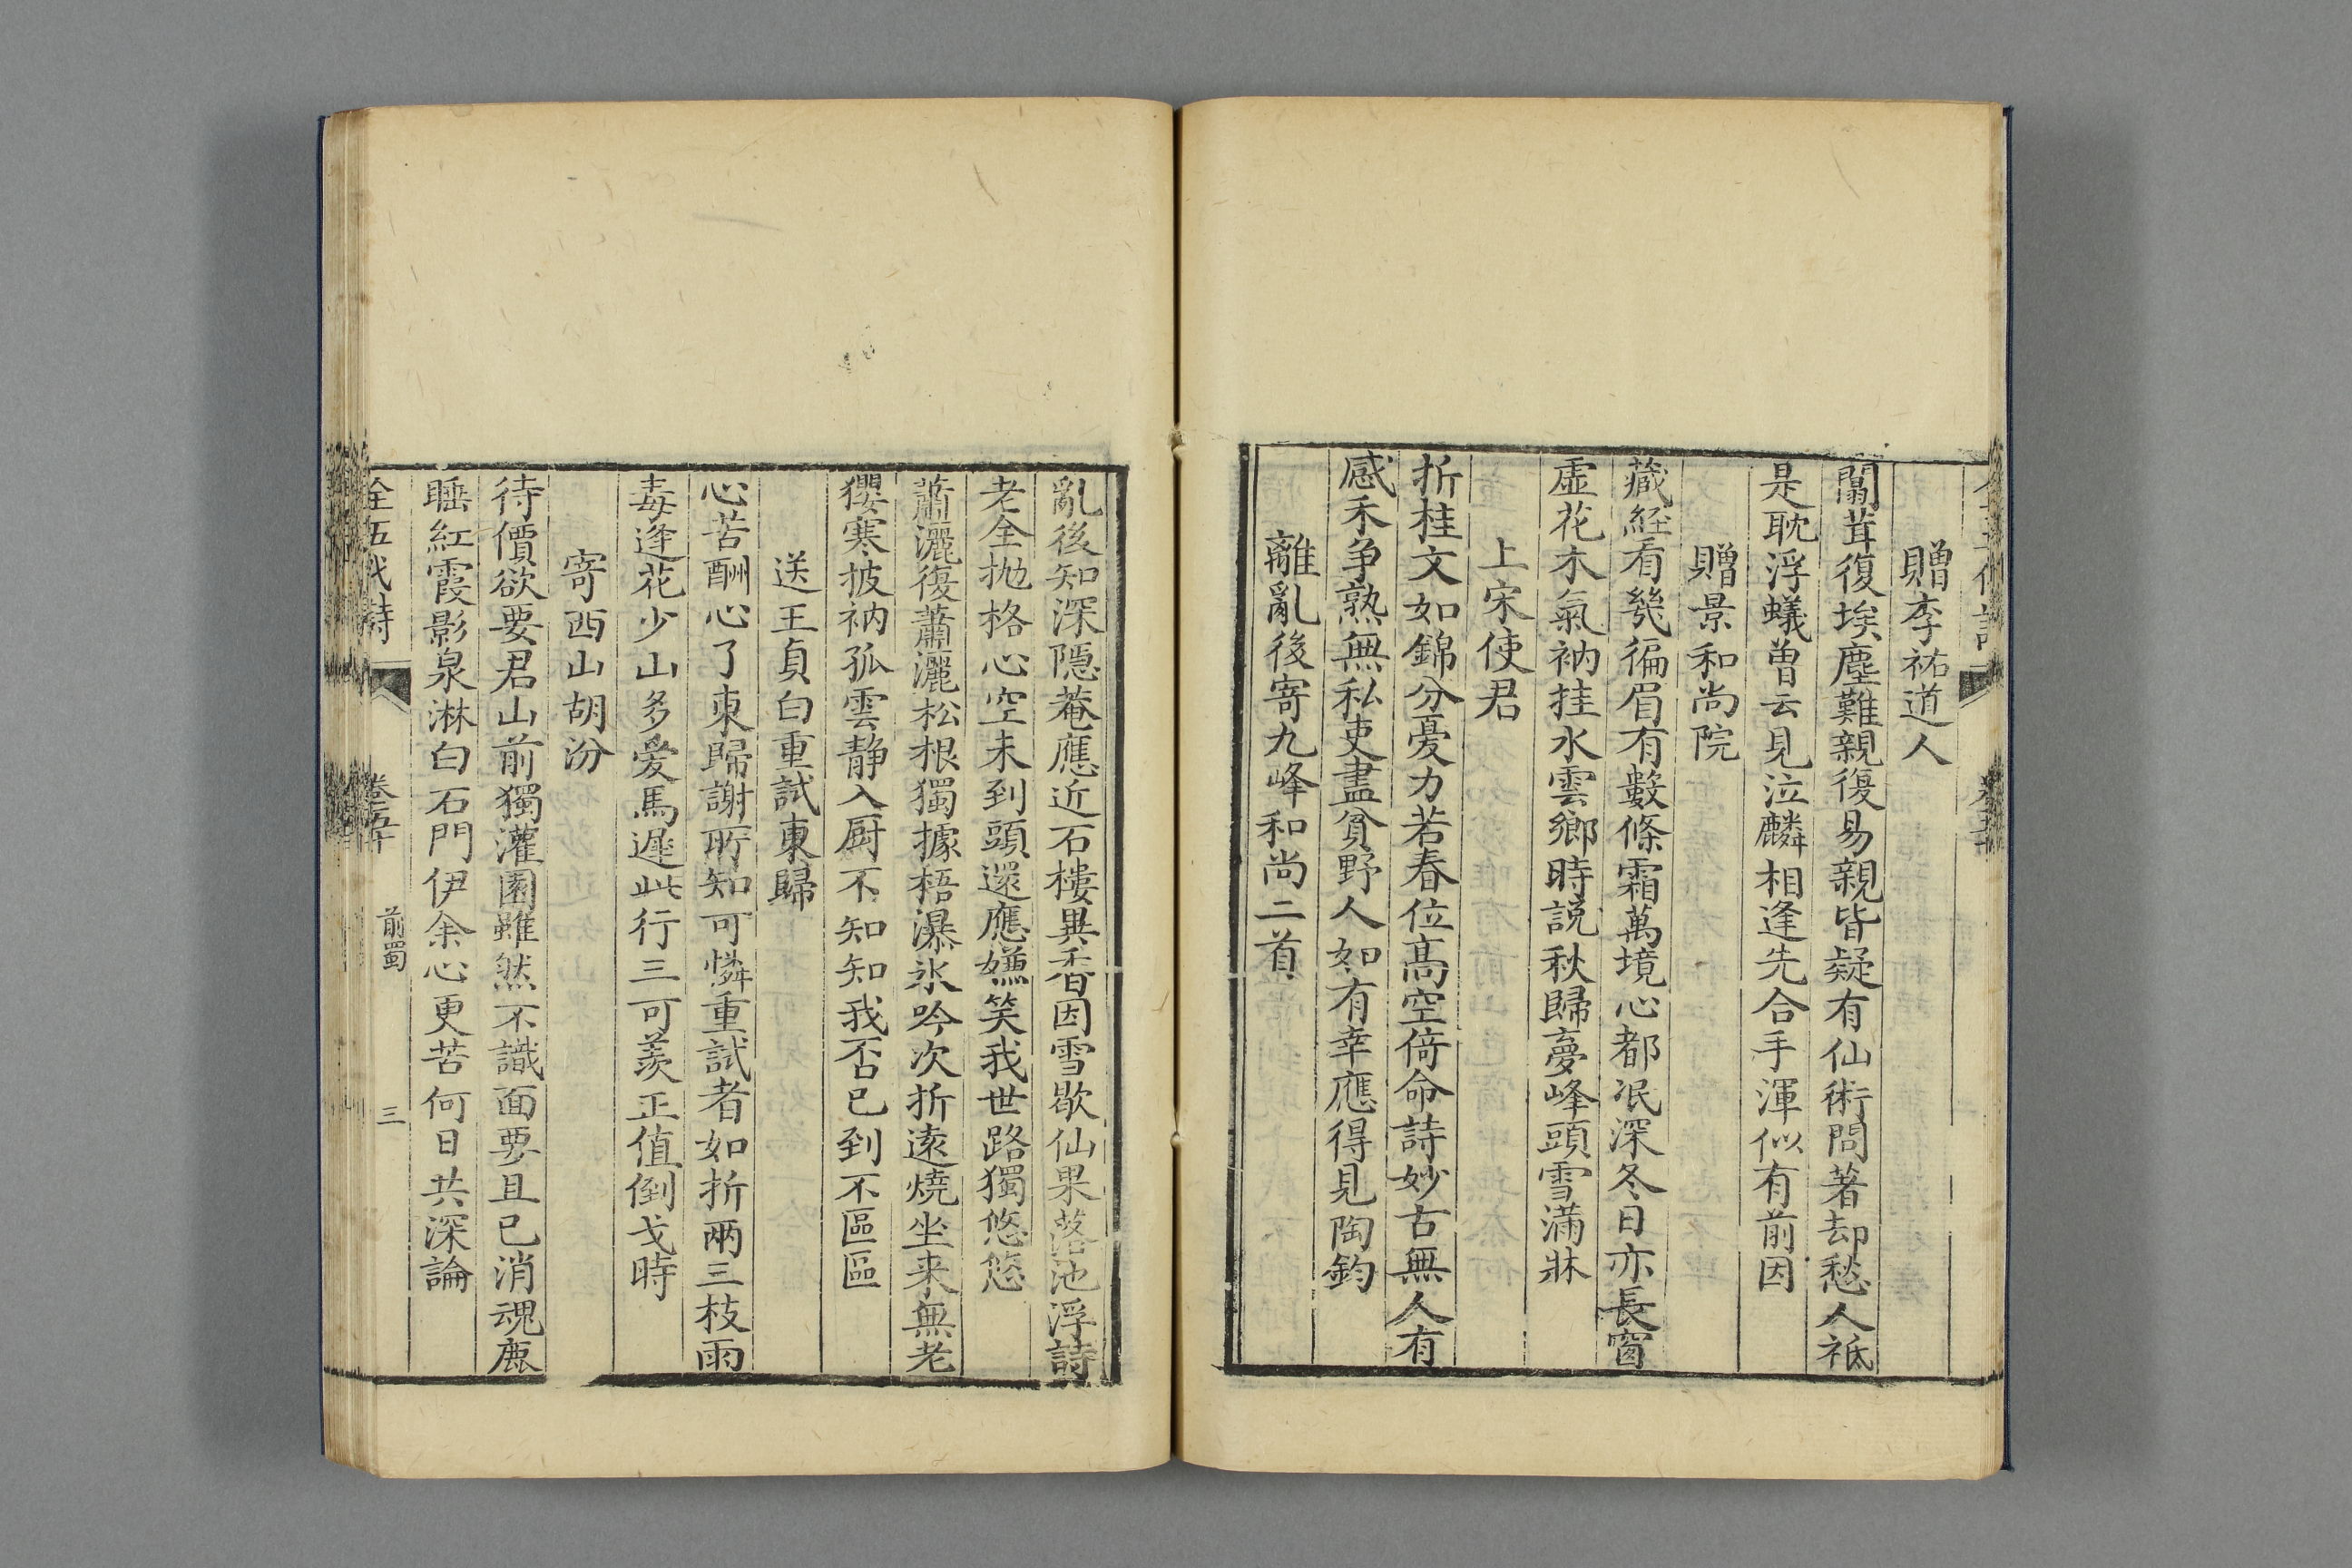 贈李祐道人
闒茸復埃塵難親復易親皆疑有仙術問著却愁人祗
是耽浮蟻曽云見泣麟相逢先合手渾似有前因
贈景和尚院
藏経看幾徧眉有數條霜萬境心都泯深冬日亦長窗
虛花木氣衲挂水雲鄉時説秋歸夢峰頭雪滿牀
上宋使君
折桂文如錦分憂力若春位髙空倚命詩妙古無人有
感禾争熟無私吏盡貧野人如有幸應得見陶鈞
離亂後寄九峰和尚二首
亂後知深隱菴應近石樓異香因雪歇仙果落池浮詩
老全抛格心空未到頭還應嫌笑我世路獨悠悠
蕭灑復蕭灑松根獨據梧瀑氷吟次折遠燒坐来無老
玃寒披衲孤雲静入厨不知知我否已到不區區
送王貞白重試東歸
心苦酬心了東歸謝所知可憐重試者如折兩三枝雨
毒逢花少山多爱馬遲此行三可羨正值倒戈時
寄西山胡汾
待價欲要君山前獨灌園雖然不識面要且已消魂鹿
睡紅霞影泉淋白石門伊余心更苦何日共深論
全五代詩 卷五十 前蜀 三